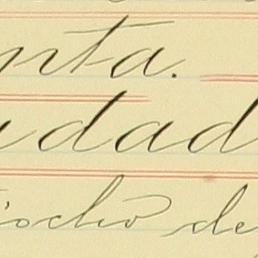 nta.
udad
iocho de